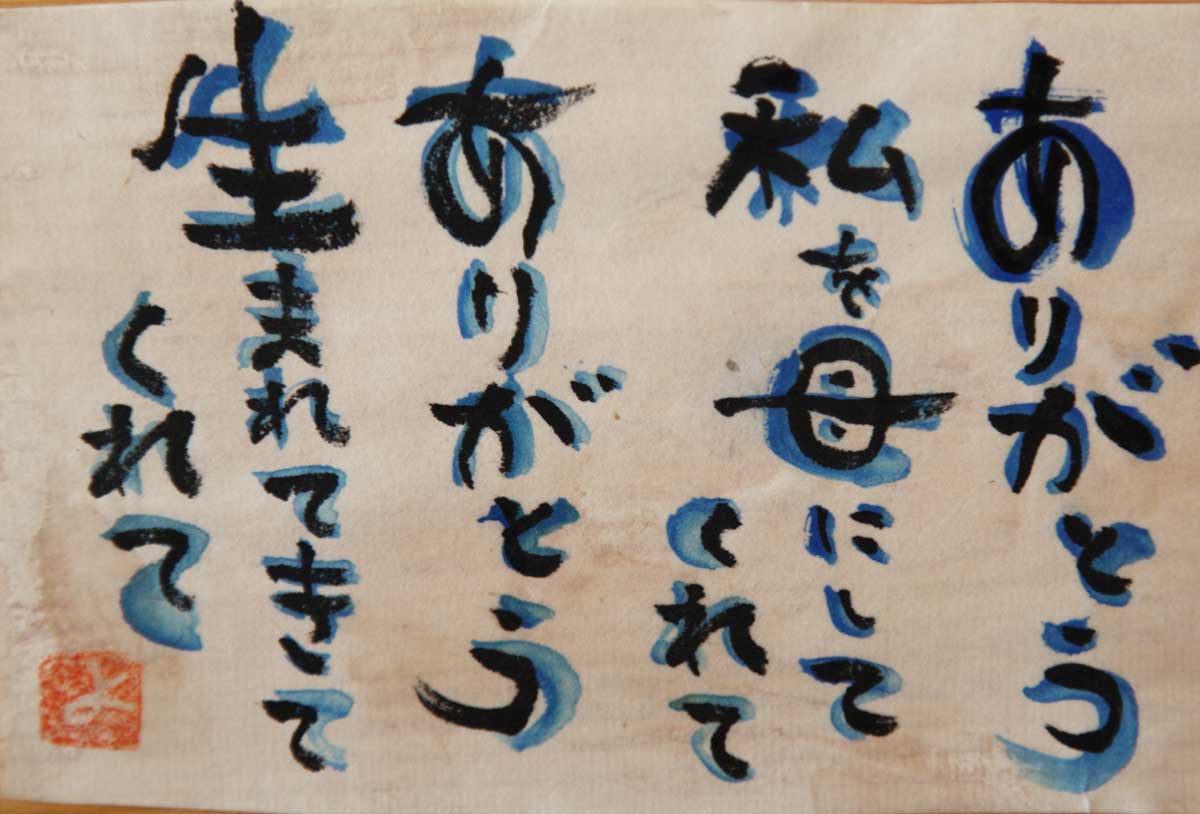 ありがとう
私を母にして
くれて
ありがとう
生まれてきて
くれて
よ